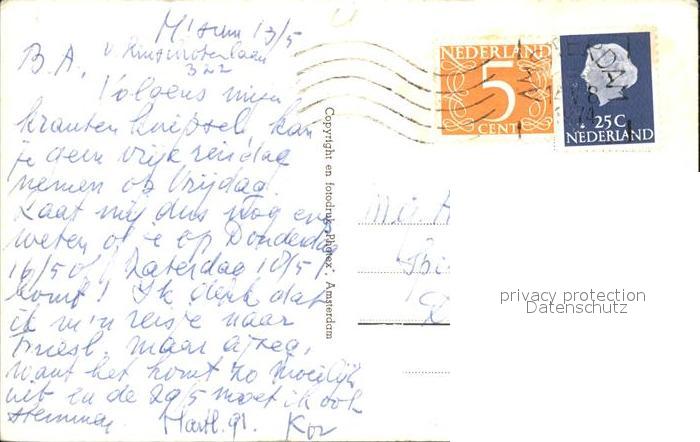 M'sum 13/5
B.A. v. Rinsumoterlaan
322
Volgens mijn
krantenknipsel kan
je geen vrije reisdag
nemen op Vrijdag.
Laat mij dus nog even
weten of je op Donderdag
16/5 of Zaterdag 18/5
komt! Ik denk dat
ik m'n reisje naar
Friesl. maar afzeg,
want het komt zo moeilijk
uit en de 29/5 moet ik ook
stemmen. Hartl. gr. Kor
Copyright en fotodruk "Photex", Amsterdam
NEDERLAND
5
CENT
AMSTERDAM
25C
NEDERLAND
privacy protection
Datenschutz